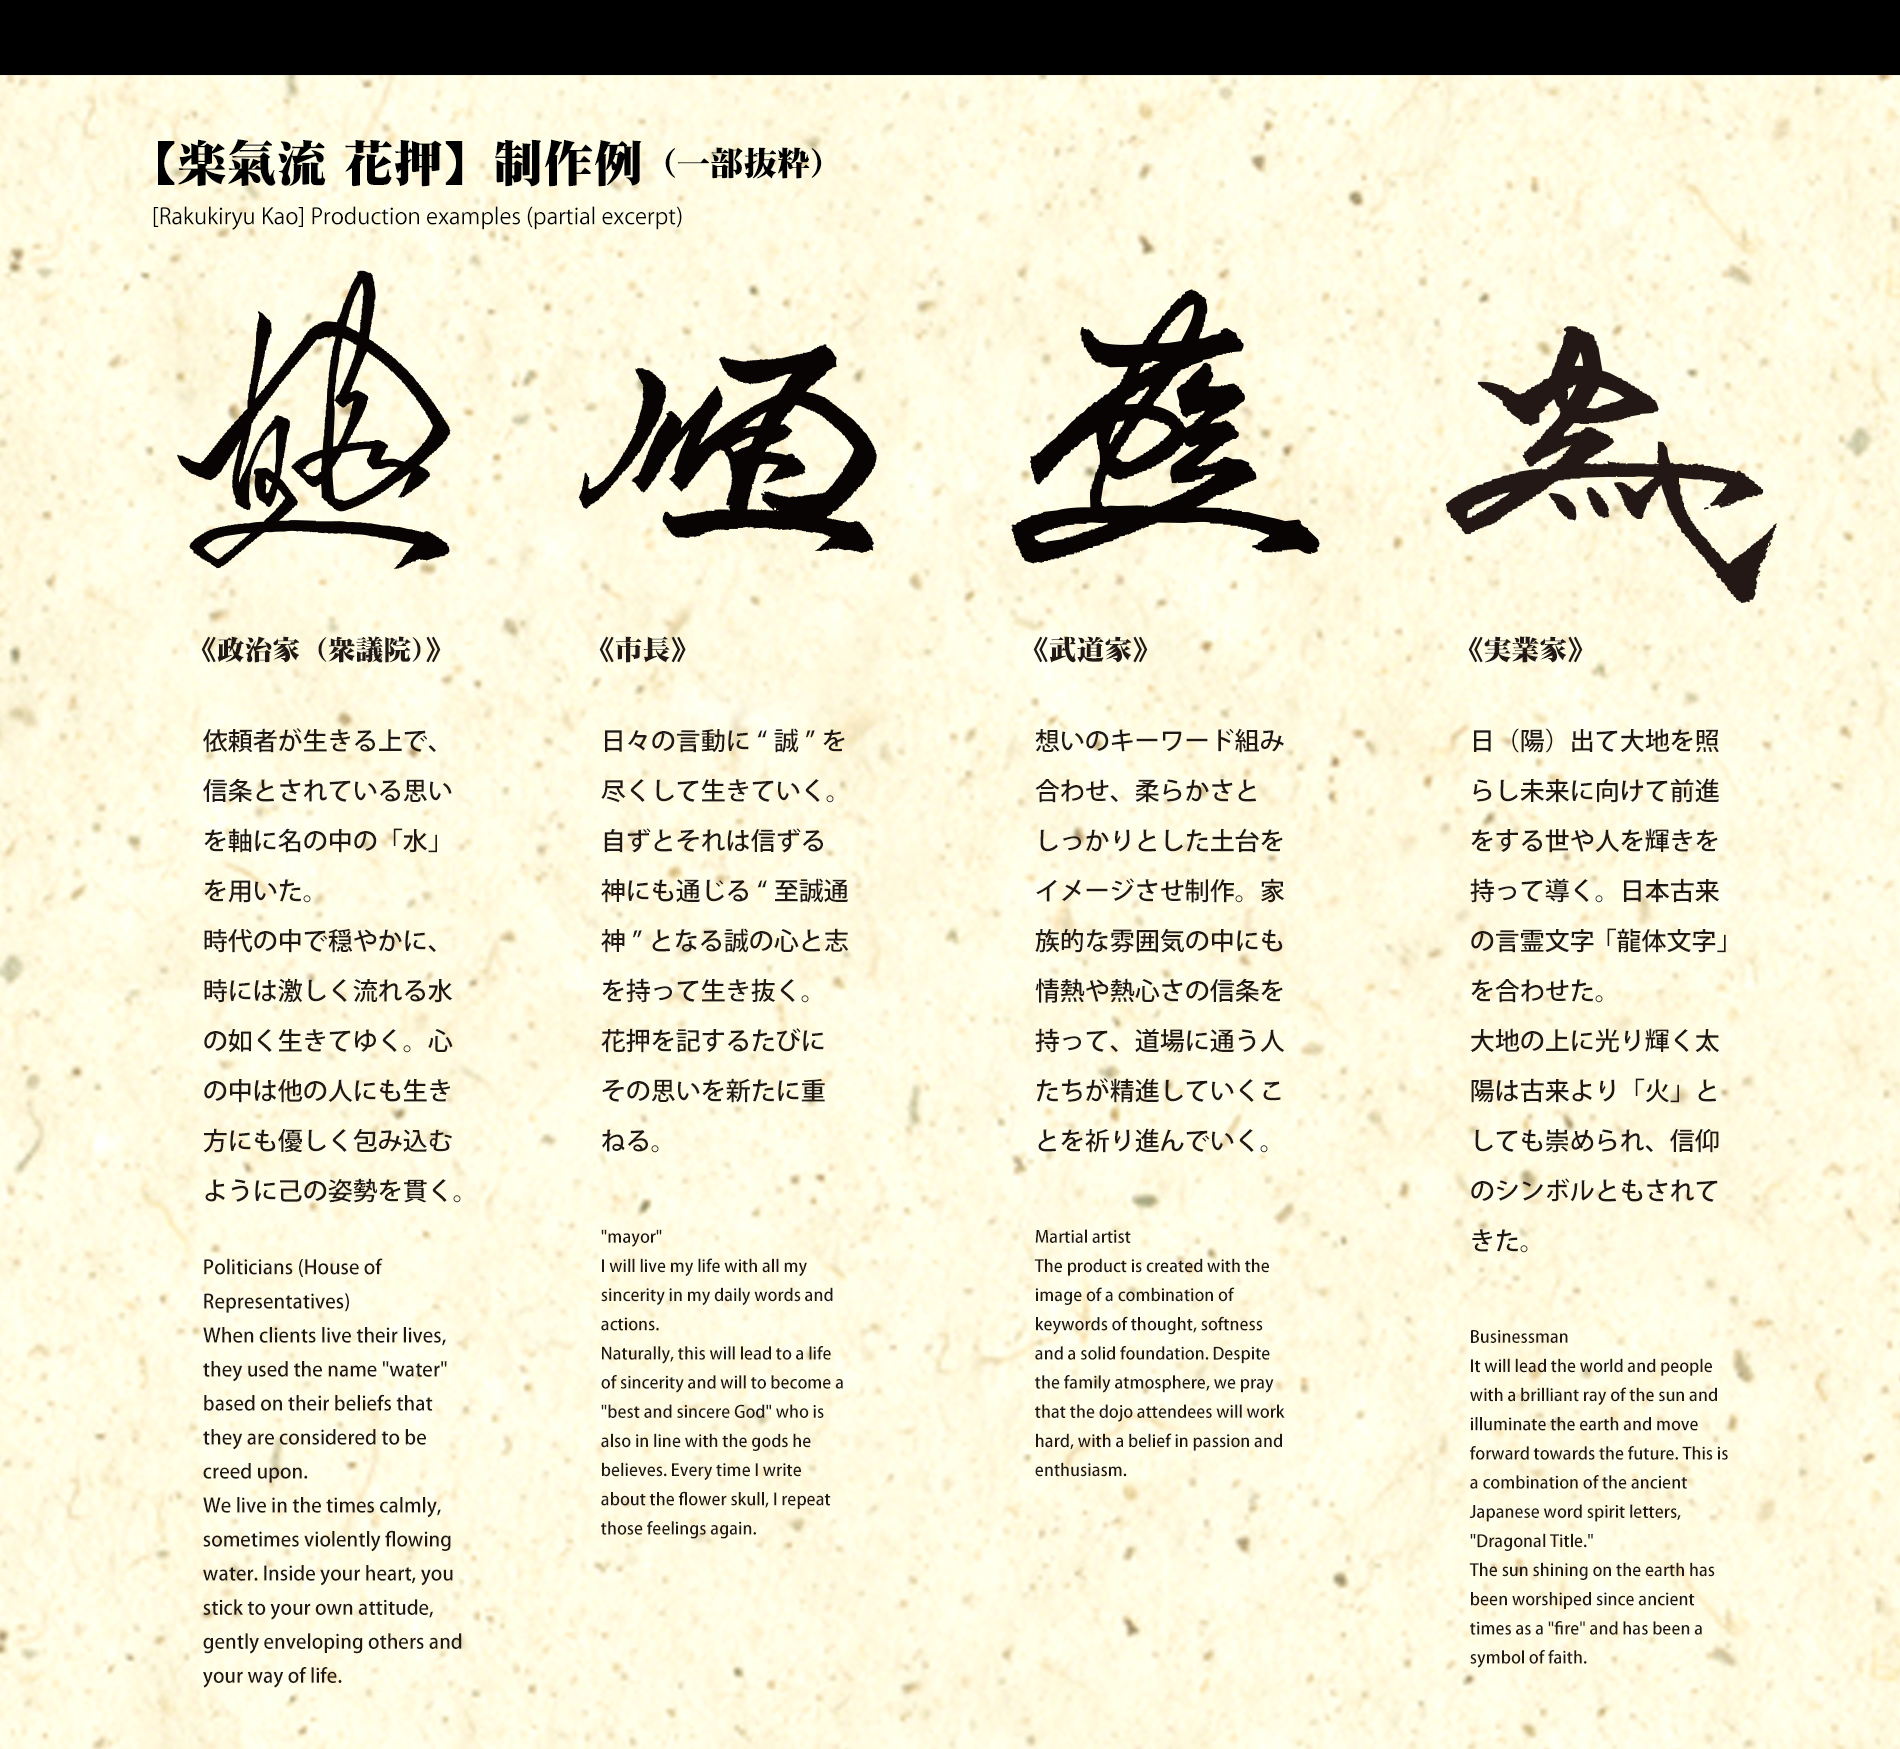 【楽氣流 花押】制作例（一部抜粋）
[Rakukiryu Kao] Production examples (partial excerpt)
《政治家（衆議院）》
依頼者が生きる上で、
信条とされている思い
を軸に名の中の「水」
を用いた。
時代の中で穏やかに、
時には激しく流れる水
の如く生きてゆく。心
の中は他の人にも生き
方にも優しく包み込む
ように己の姿勢を貫く。
Politicians (House of
Representatives)
When clients live their lives,
they used the name "water"
based on their beliefs that
they are considered to be
creed upon.
We live in the times calmly,
sometimes violently flowing
water. Inside your heart, you
stick to your own attitude,
gently enveloping others and
your way of life.
《市長》
日々の言動に“誠”を
尽くして生きていく。
自ずとそれは信ずる
神にも通じる“至誠通
神”となる誠の心と志
を持って生き抜く。
花押を記するたびに
その思いを新たに重
ねる。
"mayor"
I will live my life with all my
sincerity in my daily words and
actions.
Naturally, this will lead to a life
of sincerity and will to become a
"best and sincere God" who is
also in line with the gods he
believes. Every time I write
about the flower skull, I repeat
those feelings again.
《武道家》
想いのキーワード組み
合わせ、柔らかさと
しっかりとした土台を
イメージさせ制作。家
族的な雰囲気の中にも
情熱や熱心さの信条を
持って、道場に通う人
たちが精進していくこ
とを祈り進んでいく。
Martial artist
The product is created with the
image of a combination of
keywords of thought, softness
and a solid foundation. Despite
the family atmosphere, we pray
that the dojo attendees will work
hard, with a belief in passion and
enthusiasm.
《実業家》
日（陽）出て大地を照
らし未来に向けて前進
をする世や人を輝きを
持って導く。日本古来
の言霊文字「龍体文字」
を合わせた。
大地の上に光り輝く太
陽は古来より「火」と
しても崇められ、信仰
のシンボルともされて
きた。
Businessman
It will lead the world and people
with a brilliant ray of the sun and
illuminate the earth and move
forward towards the future. This is
a combination of the ancient
Japanese word spirit letters,
"Dragonal Title."
The sun shining on the earth has
been worshiped since ancient
times as a "fire" and has been a
symbol of faith.